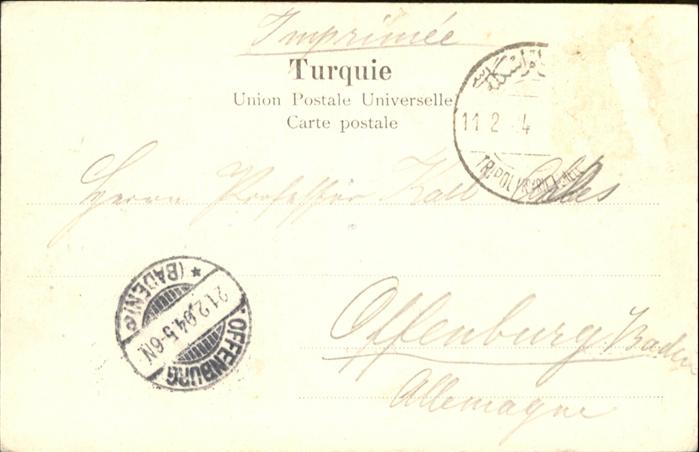 Imprimée
Turquie
Union Postale Universelle
Carte postale
11 2 4
TRIPOLI
Herrn Professor Karl
Offenburg Baden
Allemagne
OFFENBURG
21.2.04.5-6N.
* (BADEN)